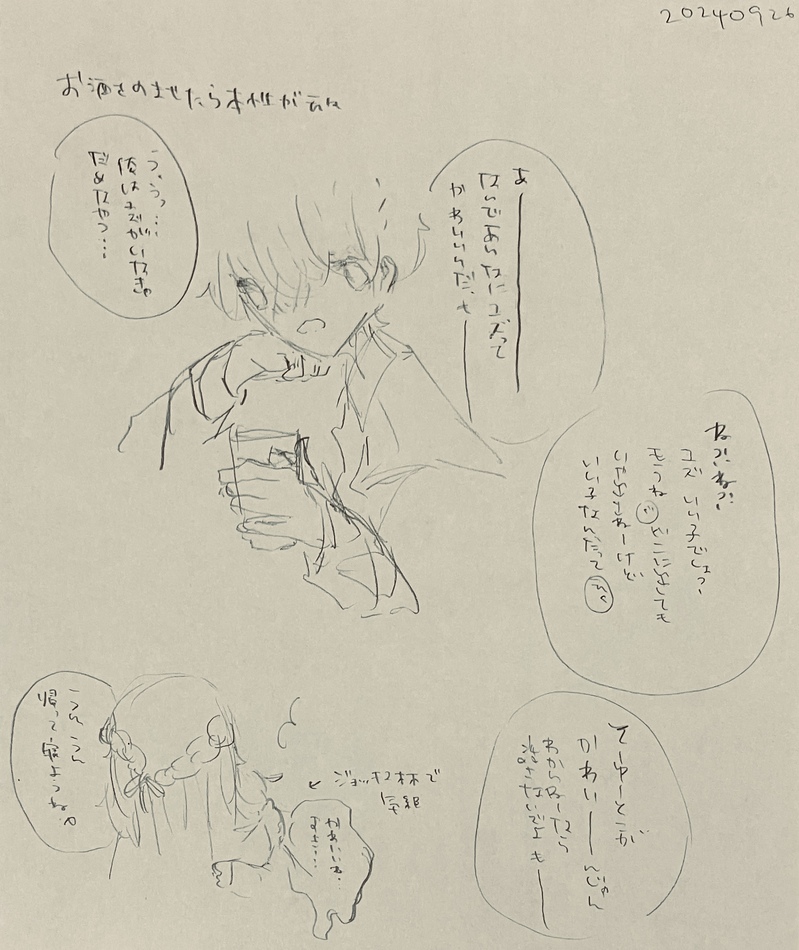 20240926
お酒をのませたら本性が
あーー
なんであんなにユズって
かわいいんだ、もーー
う、うっ…
俺はユズがいなきゃ
だめなやつ…
ね?!ね?!
ユズ いい子でしょっ
もうね どこに出しても
いい子なんだって
そーゆーとこが
かわいーーんじゃん
わからねーなら
話さないでよ もーー
うんうん
帰って寝ようね
ジョッキ2杯で